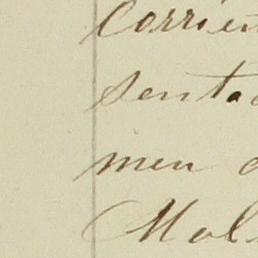 corrien
senta
men
Mol